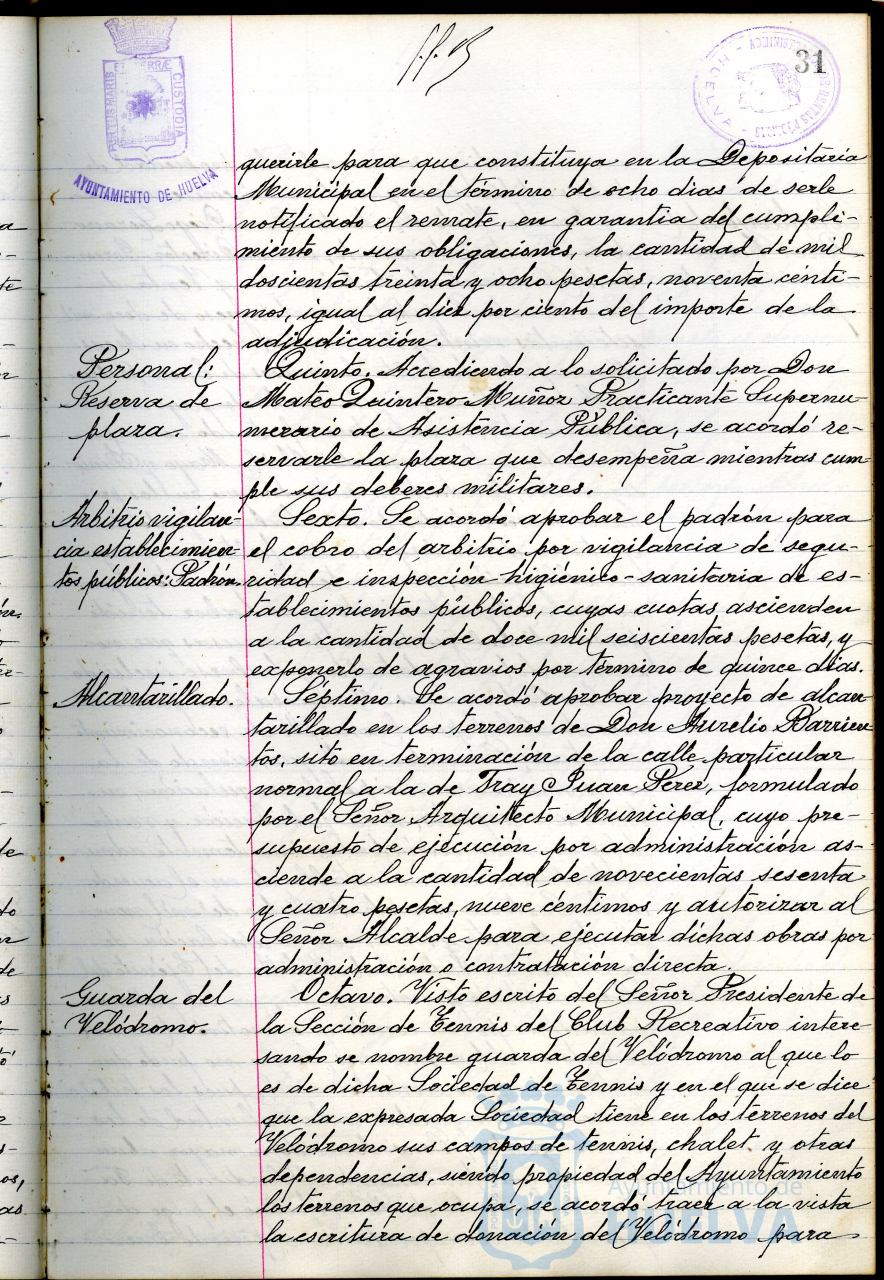 31
PORTUS MARIS ET TERRÆ CUSTODIA
AYUNTAMIENTO DE HUELVA
HUELVA
querirle para que constituya en la Depositaría
Municipal en el término de ocho dias de serle
notificado el remate, en garantia del cumpli-
miento de sus obligaciones, la cantidad de mil
doscientas treinta y ocho pesetas, noventa cénti-
mos, igual al diez por ciento del importe de la
adjudicación.
Personal:
Reserva de
plaza.
Quinto. Accediendo a lo solicitado por Don
Mateo Quintero Muñoz Practicante Supernu-
merario de Asistencia Pública, se acordó re-
servarle la plaza que desempeña mientras cum-
ple sus deberes militares.
Arbitrio vigilan-
cia establecimien-
tos públicos: Padrón.
Sexto. Se acordó aprobar el padrón para
el cobro del arbitrio por vigilancia de segu-
ridad e inspección higiénico-sanitaria de es-
tablecimientos públicos, cuyas cuotas ascienden
a la cantidad de doce mil seiscientas pesetas, y
exponerlo de agravios por término de quince dias.
Alcantarillado.
Séptimo. Se acordó aprobar proyecto de alcan-
tarillado en los terrenos de Don Aurelio Barrien-
tos, sito en terminación de la calle particular
normal a la de Fray Juan Pérez, formulado
por el Señor Arquitecto Municipal, cuyo pre-
supuesto de ejecución por administración as-
ciende a la cantidad de novecientas sesenta
y cuatro pesetas, nueve céntimos y autorizar al
Señor Alcalde para ejecutar dichas obras por
administración o contratación directa.
Guarda del
Velódromo.
Octavo. Visto escrito del Señor Presidente de
la Sección de Tennis del Club Recreativo intere-
sando se nombre guarda del Velódromo al que lo
es de dicha Sociedad de Tennis y en el que se dice
que la expresada Sociedad tiene en los terrenos del
Velódromo sus campos de tennis, chalet y otras
dependencias, siendo propiedad del Ayuntamiento
los terrenos que ocupa, se acordó traer a la vista
la escritura de donación del Velódromo para
Ayuntamiento de
HUELVA